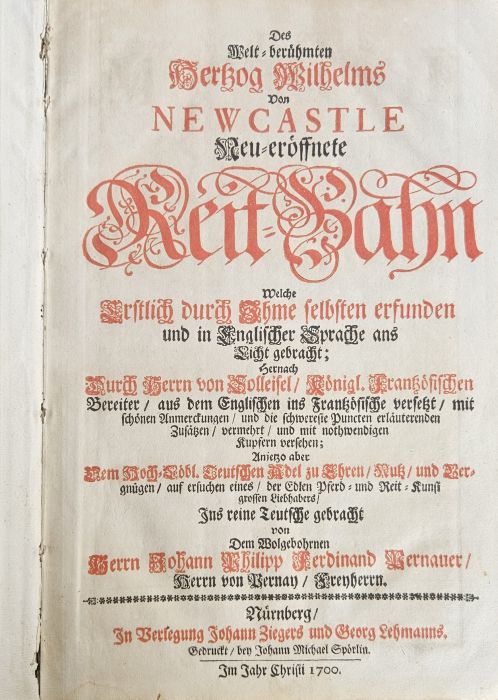 Des
Welt-berühmten
Hertzog Wilhelms
Von
NEWCASTLE
Neu-eröffnete
Reit-Bahn
Welche
Erstlich durch Ihme selbsten erfunden
und in Englischer Sprache ans
Licht gebracht;
Hernach
Durch Herrn von Solleisel/ Königl. Frantzösischen
Bereiter/ aus dem Englischen ins Frantzösische versetzt/ mit
schönen Anmerckungen/ und die schwereste Puncten erläuterenden
Zusätzen/ vermehrt/ und mit nothwendigen
Kupfern versehen;
Anjetzo aber
Dem Hoch-Löbl. Teutschen Adel zu Ehren/ Nutz/ und Ver-
gnügen/ auf ersuchen eines/ der Edlen Pferd- und Reit-Kunst
grossen Liebhabers/
Ins reine Teutsche gebracht
von
Dem Wolgebohrnen
Herrn Johann Philipp Ferdinand Pernauer/
Herrn von Pernay/ Freyherrn.
Nürnberg/
In Verlegung Johann Ziegers und Georg Lehmanns.
Gedruckt/ bey Johann Michael Spörlin.
Im Jahr Christi 1700.